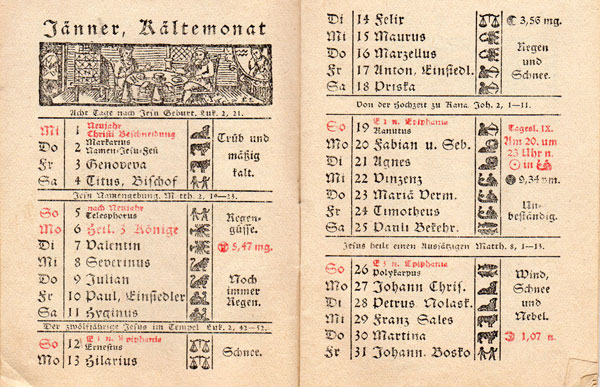 Jänner, Kältemonat
Acht Tage nach Jesu Geburt. Luk. 2, 21.
Mi 1 Neujahr Christi Beschneidung
Do 2 Markarius Namen-Jesu-Fest
Fr 3 Genoveva
Sa 4 Titus, Bischof
Trüb und
mäßig
kalt.
Jesu Namengebung. Matth. 2, 19–23.
So 5 nach Neujahr Telesphorus
Mo 6 Heil. 3 Könige
Di 7 Valentin 5,47 mg.
Mi 8 Severinus
Do 9 Julian
Fr 10 Paul, Einsiedler
Sa 11 Hyginus
Regen-
güsse.
Noch
immer
Regen.
Der zwölfjährige Jesus im Tempel. Luk. 2, 42–52.
So 12 E 1 n. Epiphanie Ernestus
Mo 13 Hilarius
Schnee.
Di 14 Felix 3,56 mg.
Mi 15 Maurus
Do 16 Marzellus
Fr 17 Anton, Einsiedl.
Sa 18 Priska
Regen
und
Schnee.
Von der Hochzeit zu Kana. Joh. 2, 1–11.
So 19 E 2 n. Epiphanie Kanutus
Mo 20 Fabian u. Seb.
Di 21 Agnes
Mi 22 Vinzenz
Do 23 Mariä Verm.
Fr 24 Timotheus
Sa 25 Pauli Bekehr.
Tagesl. IX.
Am 20. um
23 Uhr n.
in
9,34 vm.
Un-
beständig.
Jesus heilt einen Aussätzigen Matth. 8, 1–13.
So 26 E 3 n. Epiphanie Polykarpus
Mo 27 Johann Chrys.
Di 28 Petrus Nolask.
Mi 29 Franz Sales
Do 30 Martina 1,07 n.
Fr 31 Johann. Bosko
Wind,
Schnee
und
Nebel.